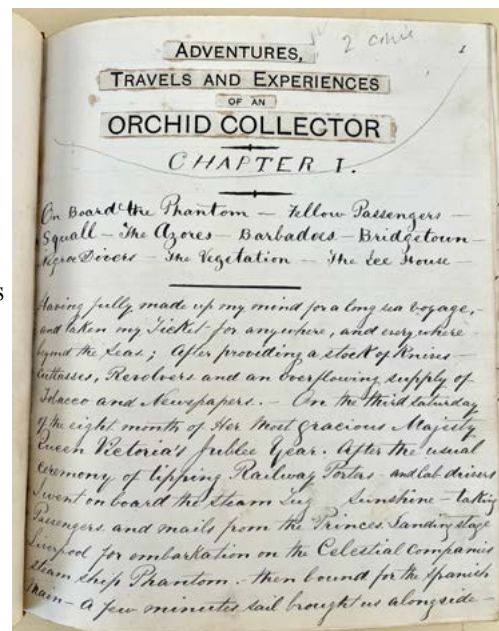 2 1
ADVENTURES,
TRAVELS AND EXPERIENCES
OF AN
ORCHID COLLECTOR
CHAPTER I.
On Board the Phantom – Fellow Passengers –
Squall – The Azores – Barbados – Bridgetown –
Negroe Divers – The Vegetation – The Ice House –
Having fully made up my mind for a long sea voyage, –
and taken my Ticket for anywhere, and everywhere
beyond the Seas; After providing a stock of Knives –
Cutlasses, Revolvers and an overflowing supply of
Tobacco and Newspapers. – On the third Saturday
of the eight month of Her Most Gracious Majesty
Queen Victoria's Jubilee Year. After the usual
Ceremony of tipping Railway Porters and Cab drivers
I went on board the Steam Tug Sunshine – taking
Passengers and mails from the Princes Landing stage
Liverpool for embarkation on the Celestial Companies
steam ship Phantom. – then bound for the Spanish
Main – A few minutes sail brought us alongside –
s